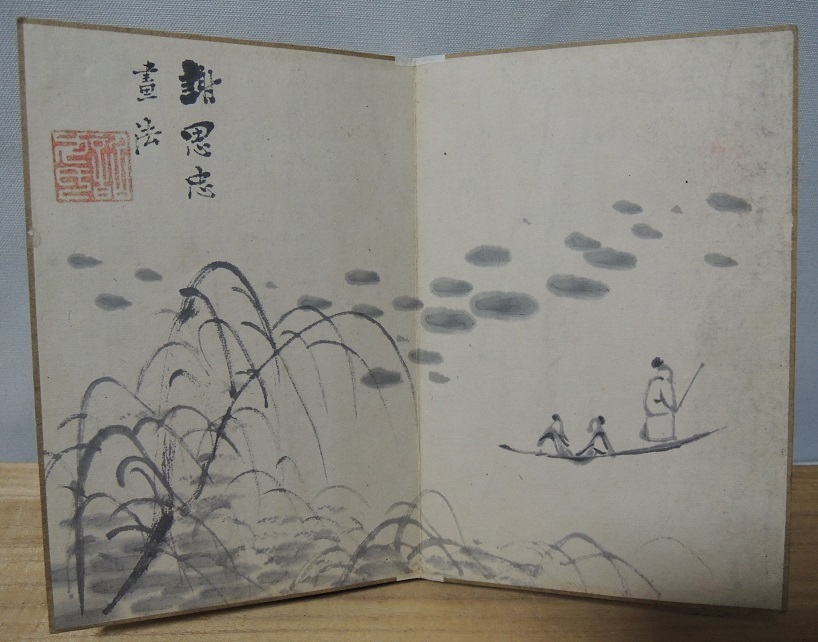 謝思忠
畫法